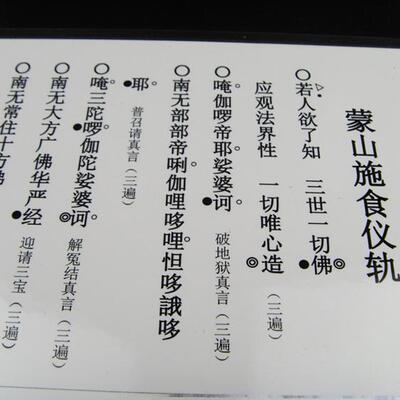 蒙山施食仪轨
若人欲了知 三世一切佛
应观法界性 一切唯心造 (三遍)
唵伽啰帝耶娑婆诃 破地狱真言(三遍)
南无部部帝唎伽哩哆哩怛哆誐哆
耶 普召请真言(三遍)
唵三陀啰伽陀娑婆诃 解冤结真言(三遍)
南无大方广佛华严经 (三遍)
南无常住十方佛 迎请三宝(三遍)